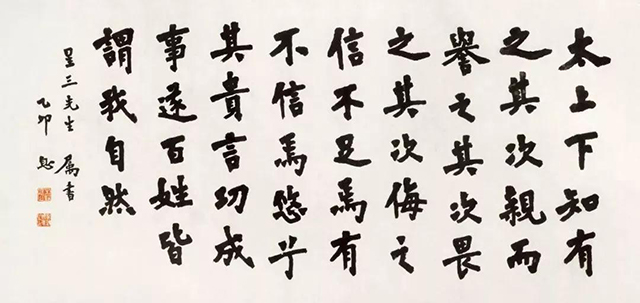 太上下知有
之其次親而
譽之其次畏
之其次侮之
信不足焉有
不信焉悠乎
其貴言功成
事遂百姓皆
謂我自然
呈三先生 属書
乙卯